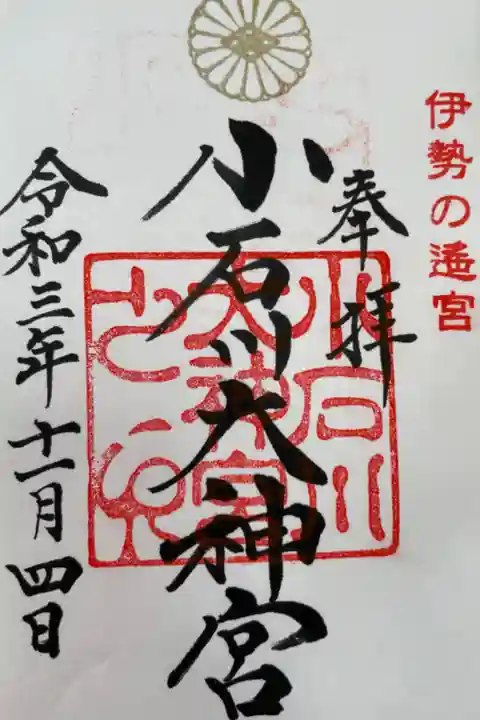 伊勢の遥宮
奉拝
小石川大神宮
小石川
大神宮
之印
令和三年十一月四日